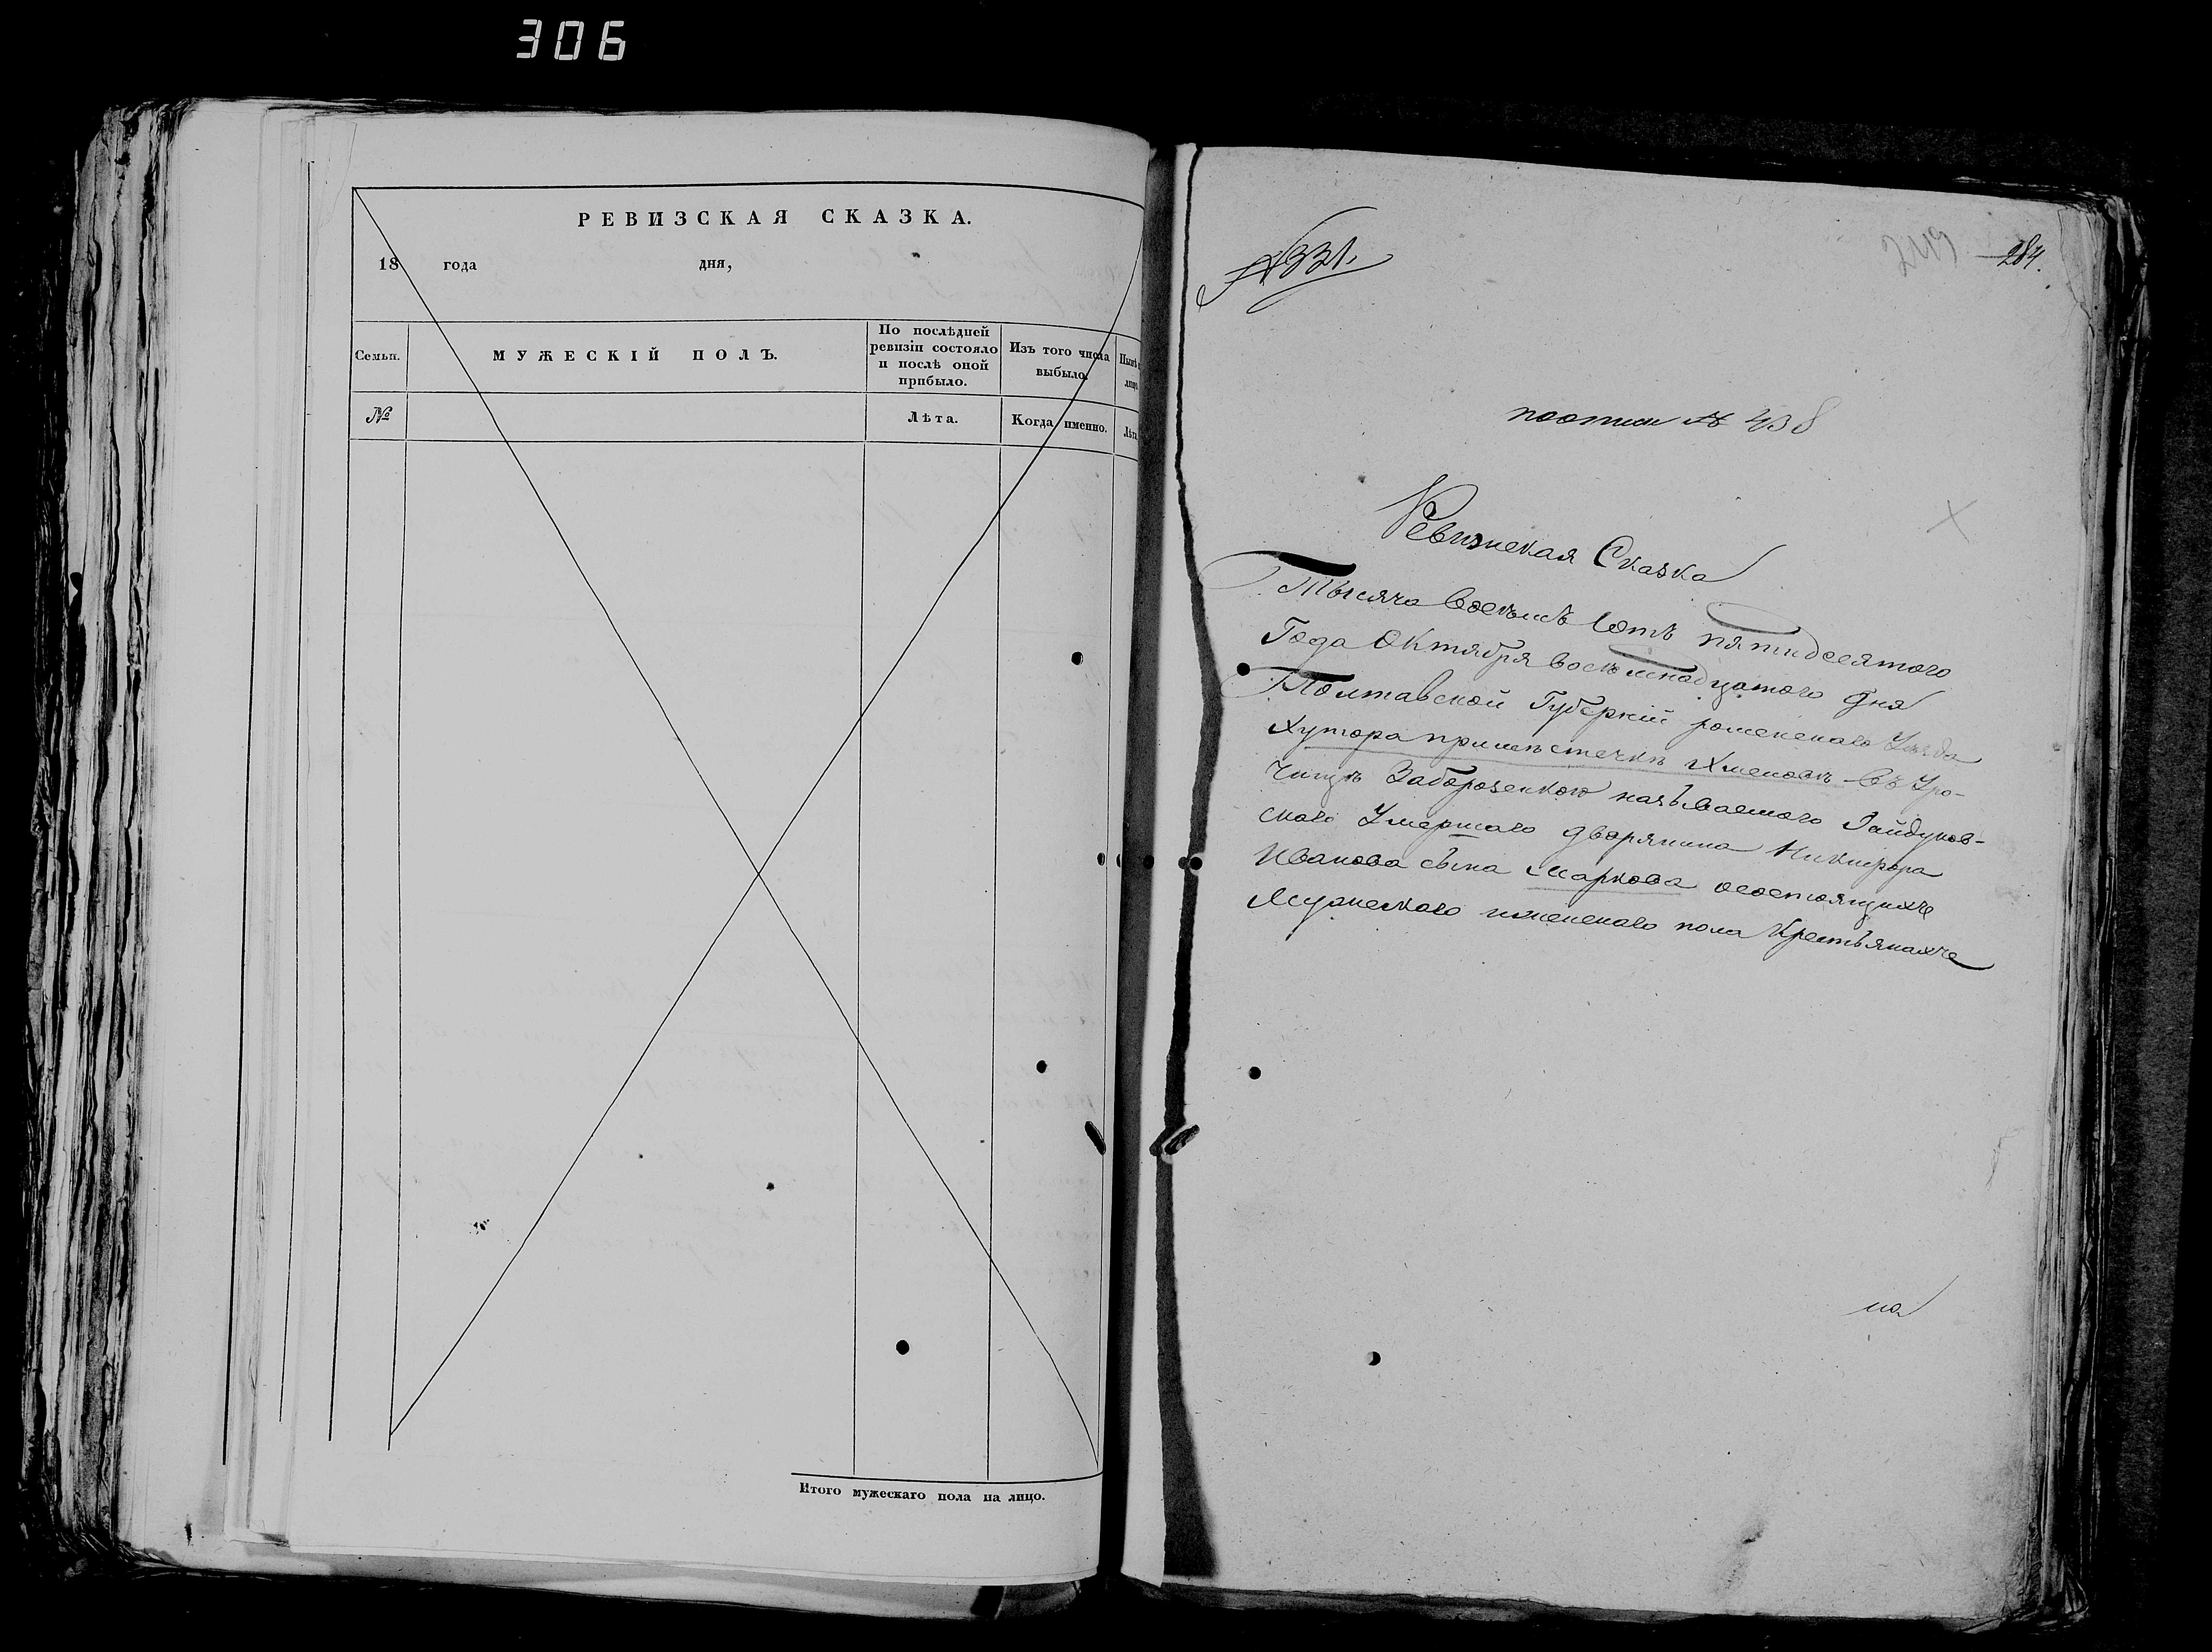 306
РЕВИЗСКАЯ СКАЗКА.
18 года дня,
Семьи.
МУЖЕСКІЙ ПОЛЪ.
По послѣдней
ревизіи состояло
и послѣ оной
прибыло.
Изъ того числа
выбыло.
№
Лѣта.
Когда именно.
Итого мужескаго пола на лицо.
№331.
249
284.
по описи № 438
Ревизская Сказка
Тысяча восемь сотъ пятидесятого
Года Октября восемнадцатого дня
Полтавской Губерніи роменского Уезда
Хутора приместечкѣ Хмеловѣ въ Уро-
чищѣ Заборозенкою называемого Гайдуков-
ского Умершаго дворянина Никифора
Иванова сына Маркова осостоящихъ
Мужеского иженского пола Крестьянахъ